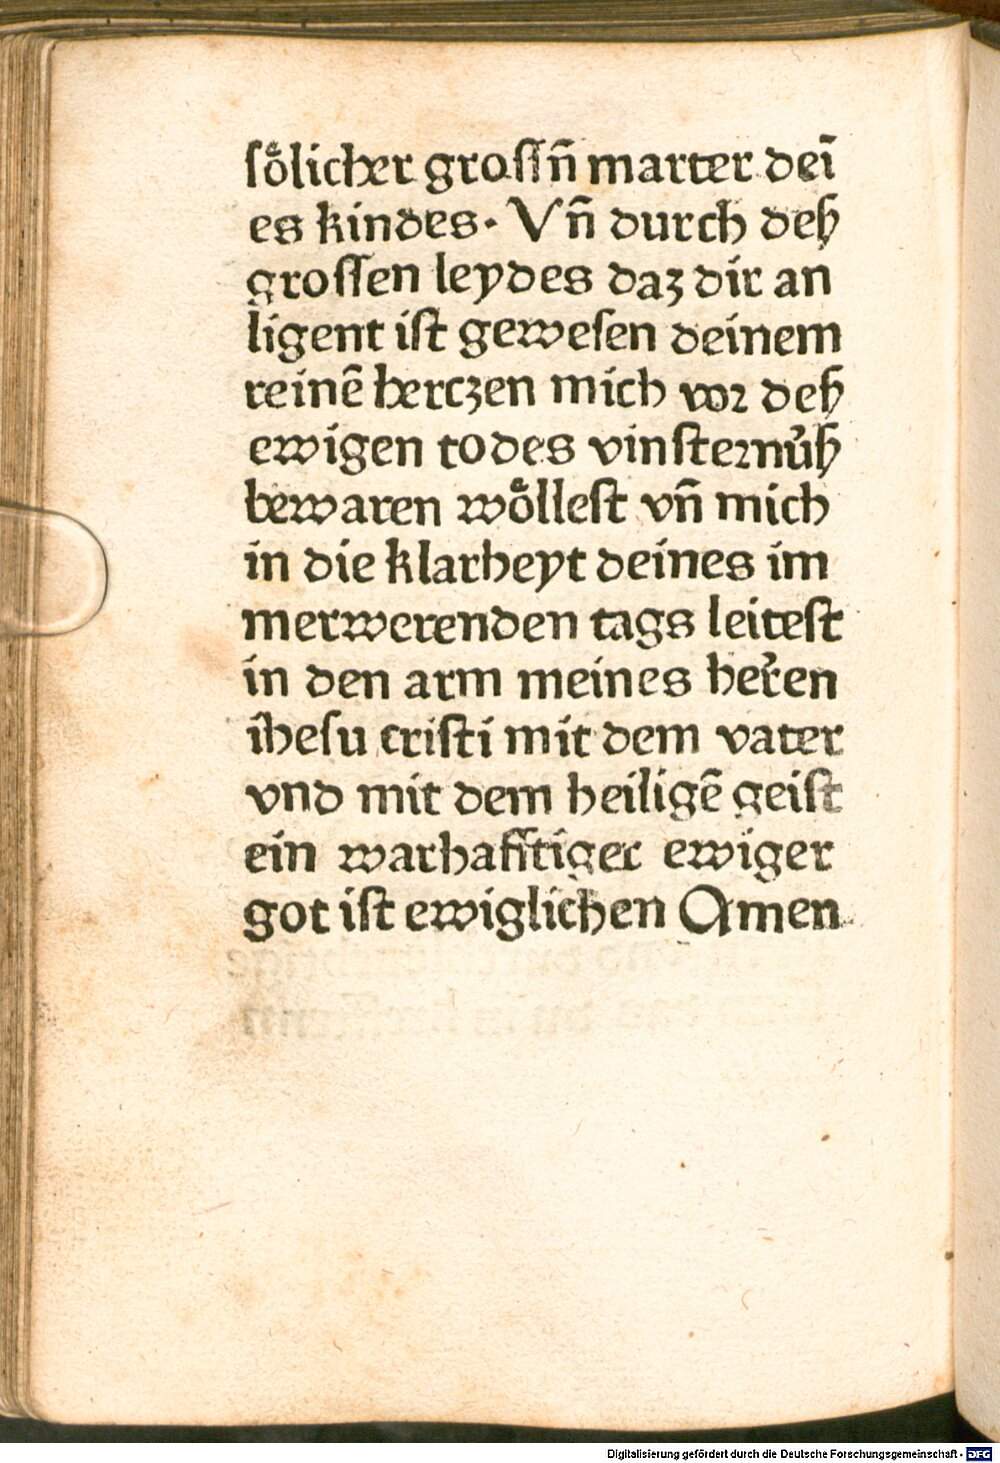 soͤlicher grossñ marter deī
es kindes· Vñ durch deß
grossen leydes daz dir an
ligent ist gewesen deinem
reinē herczen mich vor deß
ewigen todes vinsternuͦß
bewaren woͤllest vñ mich
in die klarheyt deines im
merwerenden tags leitest
in den arm meines herren
ihesu cristi mit dem vater
vnd mit dem heiligē geist
ein warhafftiger ewiger
got ist ewiglichen Amen
Digitalisierung gefördert durch die Deutsche Forschungsgemeinschaft - DFG